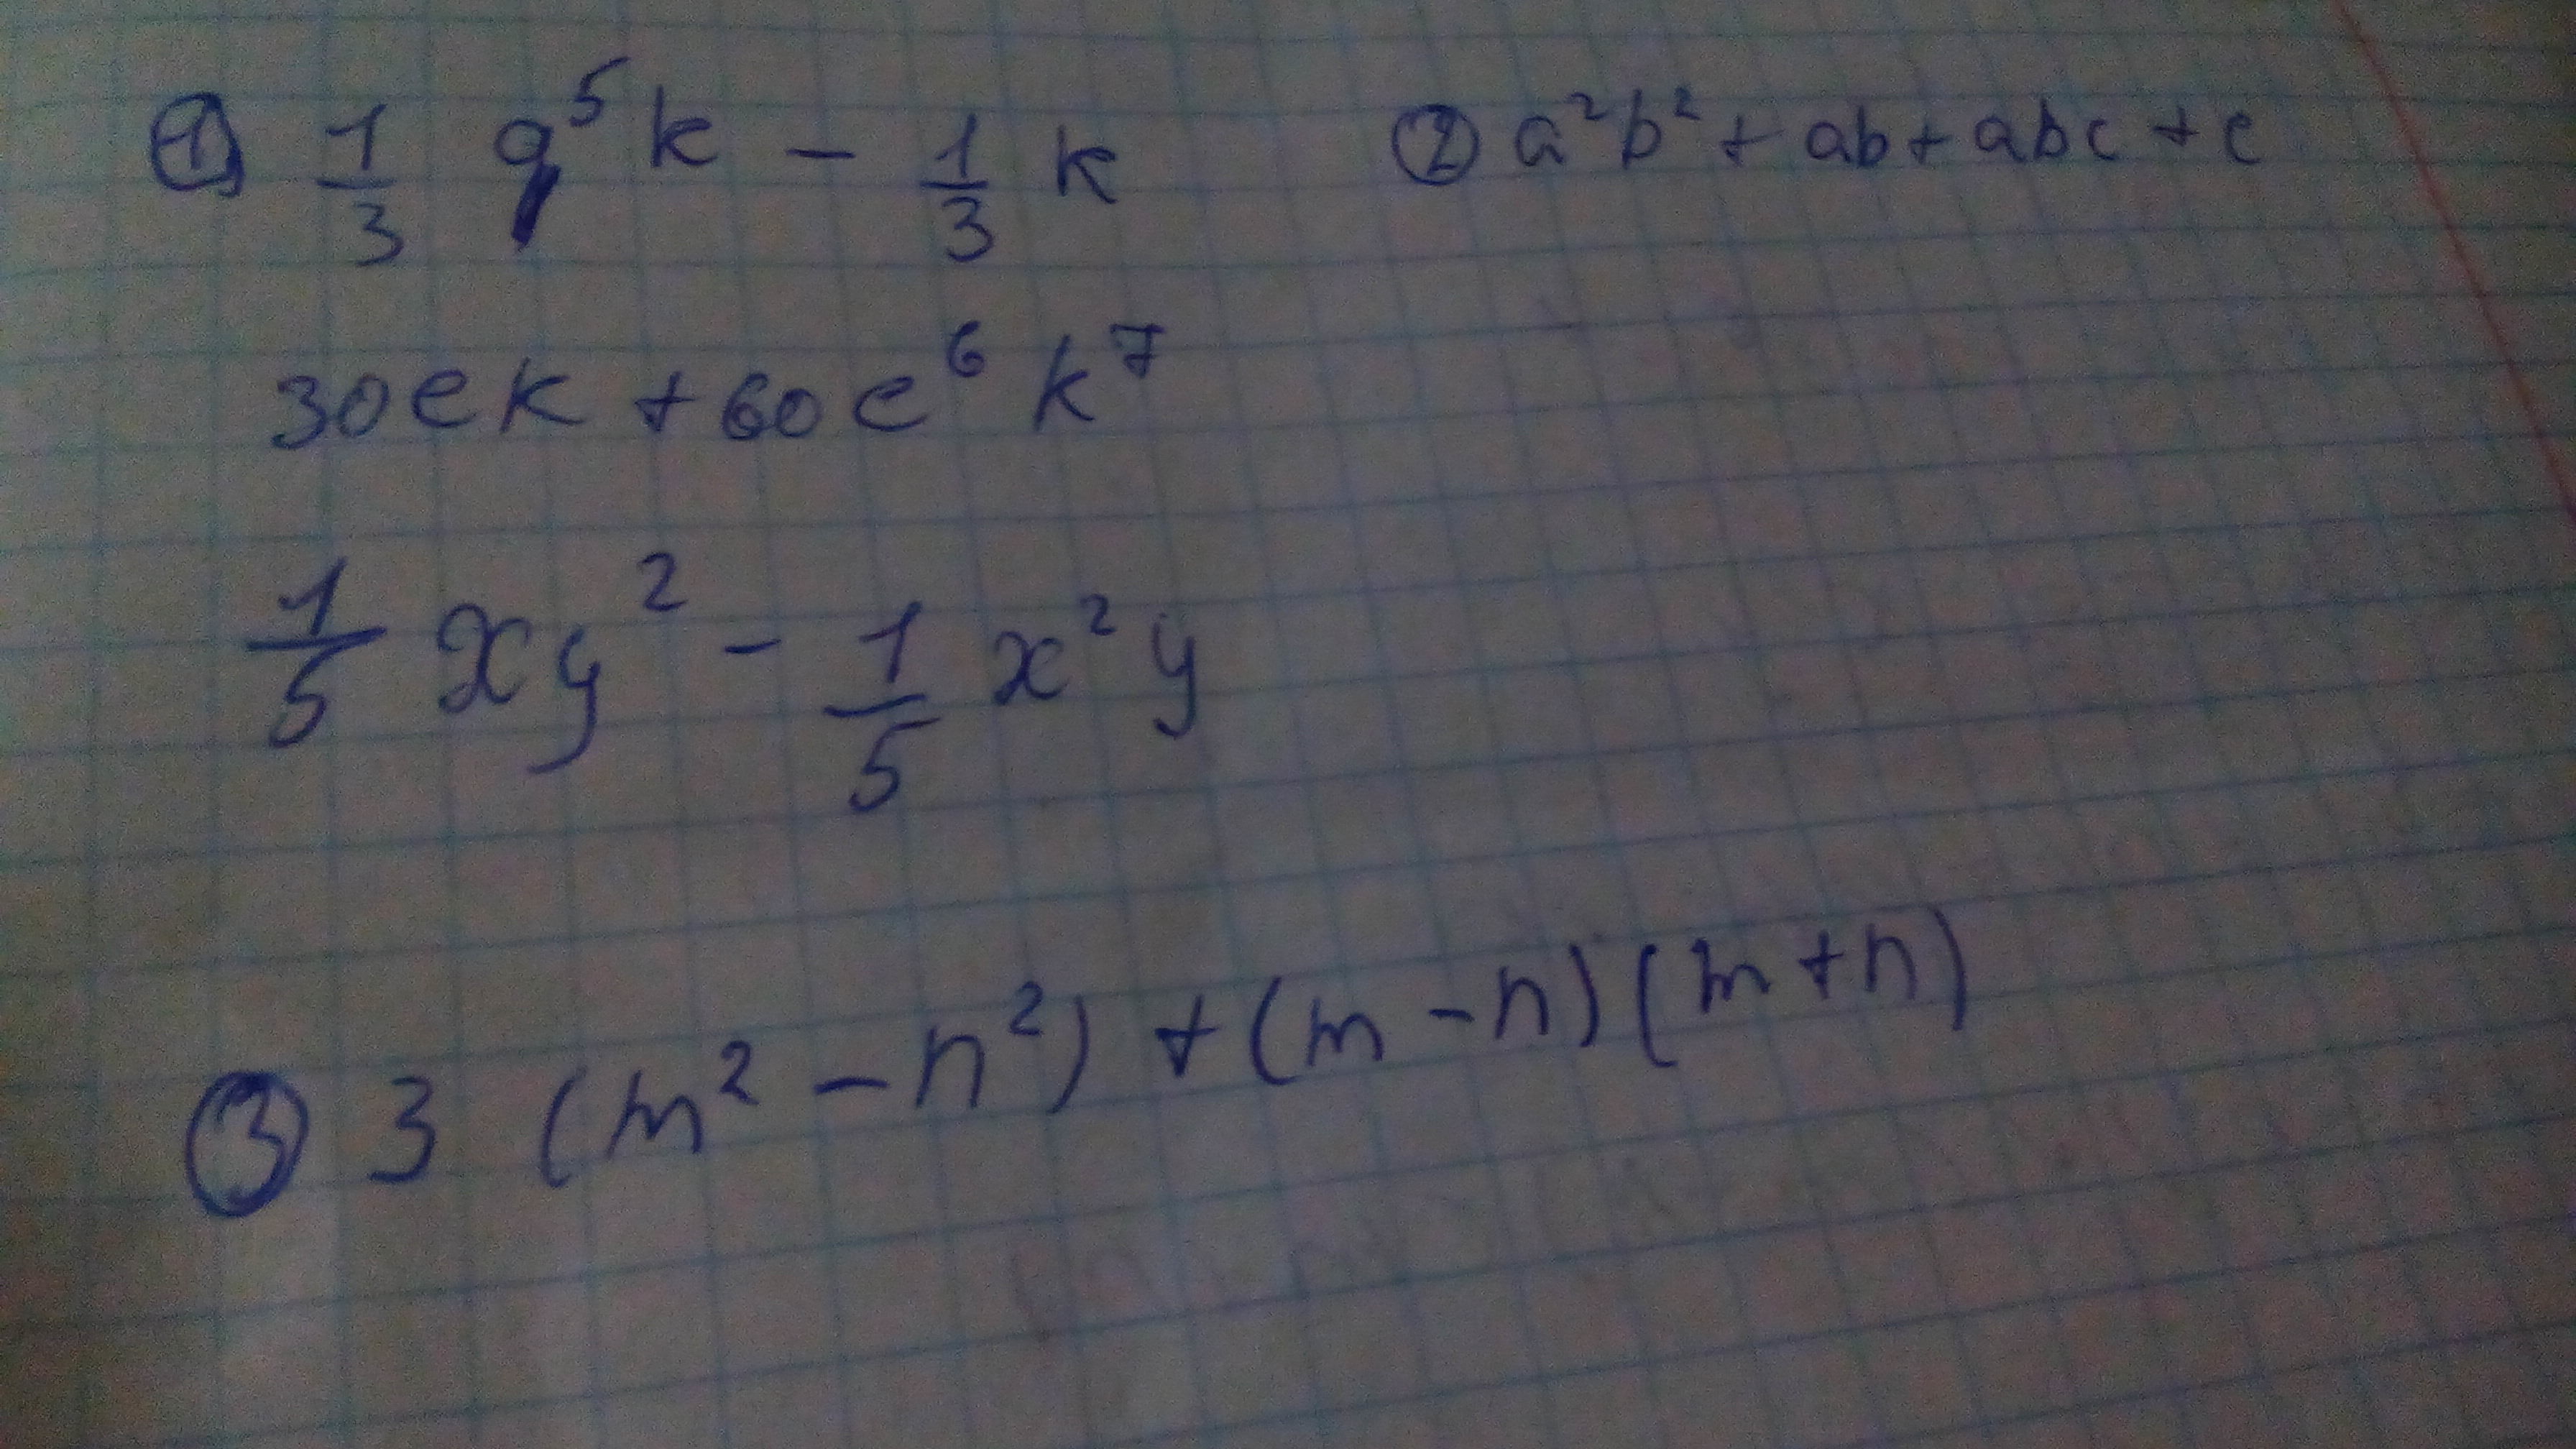 ① 1/3 q⁵k - 1/3 k
② a²b² + ab + abc + c
30ek + 60e⁶k⁷
1/5 xy² - 1/5 x²y
③ 3 (m² - n²) + (m - n)(m + n)